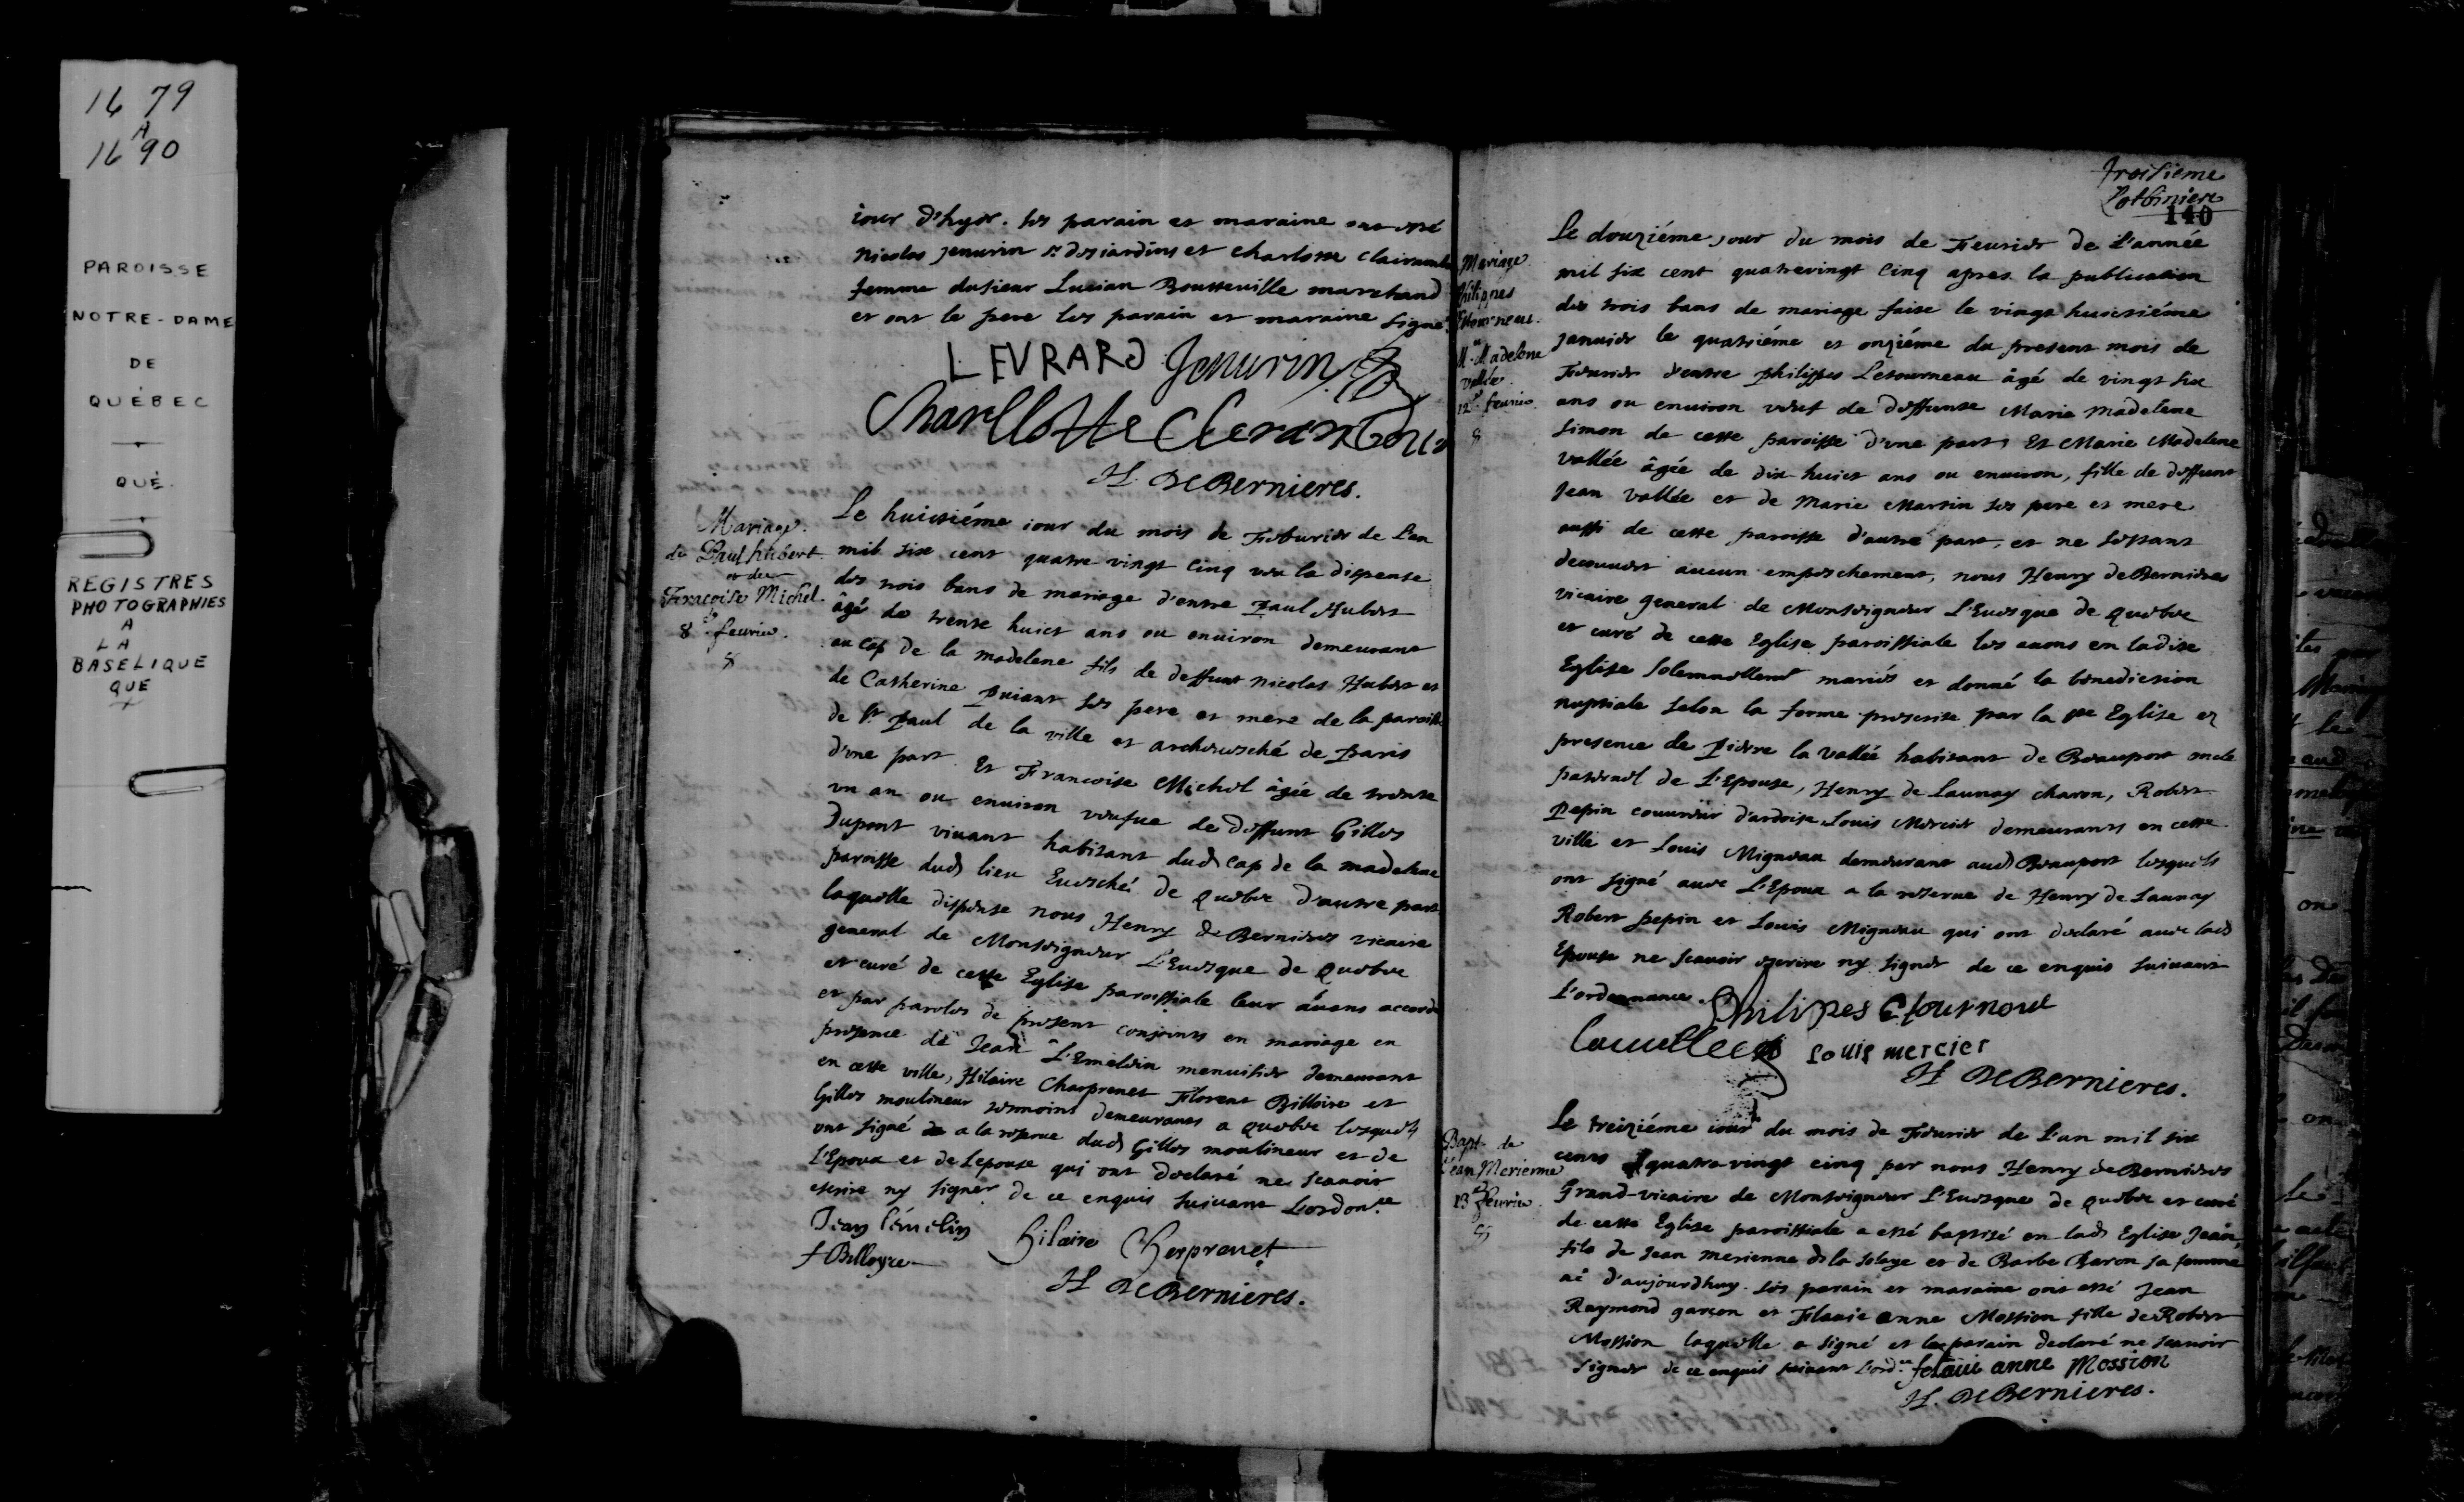 1679
A
1690
PAROISSE
NOTRE-DAME
DE
QUÉBEC
QUÉ.
REGISTRES
PHOTOGRAPHIES
A
LA
BASELIQUE
QUE
iour d'hyer. ses parain et maraine ont esté
Nicolas Jenurin Sr desiardins et Charlotte
femme du sieur Lucian Boutteuille marchand
et ont le pere les parain et maraine signé
LEVRARD Jenvrin
Charllotte
H. DeBernieres.
Mariage.
de Paul hubert
et de
Françoise Michel.
8e feurier.
Le huictiéme iour du mois de Feburier de L'an
mil six cent quatre vingt cinq veu la dispense
des trois bans de mariage d'entre Paul Hubert
âgé de trente huict ans ou enuiron demeurant
au Cap de la madelene fils de deffunt Nicolas Hubert et
de Catherine ses pere et mere de la paroisse
de St Paul de la ville et archeuesché de Paris
d'vne part. Et Francoise Michel âgée de trente
vn an ou enuiron veufue de deffunt Gilles
Dupont viuant habitant dud Cap de la madelene
paroisse dud lieu Euesché de Quebec d'autre part
laquelle dispense nous Henry de Bernieres vicaire
general de Monseigneur L'Euesque de Quebec
et curé de cette Eglise paroissiale leur auons accordé
et par paroles de present conjoints en mariage en
presence de Jean L'Emelein menuisier demeurant
en cette ville, Hilaire Charprenet Florent Billoire et
Gilles moulineur tesmoins demeurants a Quebec lesquels
ont signé a la reserue dud Gilles moulineur et de
L'Epoux et de Lepouse qui ont declaré ne scauoir
escrire ny signer de ce enquis suiuant Lordonce
Jean lémelin hilaire Cherprenet
f Billoyre
H DeBernieres.
troisieme
Lotbiniere
140
Mariage
Philippes
Etourneau
Me Madelene
vallée.
12e feurier
Le douziéme jour du mois de Feurier de L'année
mil six cent quatrevingt cinq apres la publication
des trois bans de mariage faite le vingt huictiéme
Januier le quatriéme et onziéme du present mois de
Feurier d'entre Philippes Letourneau âgé de vingt six
ans ou enuiron veuf de deffunte Marie Madelene
Simon de cette paroisse d'vne part; Et Marie Madelene
vallée âgée de dix huict ans ou enuiron, fille de deffunt
Jean vallée et de Marie Martin ses pere et mere
aussi de cette paroisse d'autre part, et ne s'estant
decouuert aucun empeschement, nous Henry de Bernieres
vicaire general de Monseigneur L'Euesque de Quebec
et curé de cette Eglise paroissiale les auons en ladite
Eglise solemnellement mariés et donné la benediction
nuptiale selon la forme prescrite par la Ste Eglise en
presence de Pierre la vallée habitant de Beauport oncle
paternel de L'Epouse, Henry de Launay charon, Robert
Pepin couureur d'ardoise, Louis Mercier demeurants en cette
ville et Louis Migneau demeurant aud Beauport lesquels
ont signé auec L'Epoux a la reserue de Henry de Launay
Robert pepin et Louis Migneau qui ont declaré auec lad
Epouse ne scauoir escrire ny signer de ce enquis suiuant
L'ordonnance.
Philipes Etournout
Lauallee Louis mercier
H DeBernieres.
Bapt. de
Jean Merienne
13e feurier.
Le treiziéme iour du mois de Feurier de L'an mil six
cents quatre vingt cinq par nous Henry de Bernieres
Grand-vicaire de Monseigneur L'Euesque de Quebec et curé
de cette Eglise paroissiale a esté baptisé en lad Eglise Jean,
fils de Jean merienne dit la solaye et de Barbe Baron sa femme
né d'aujourdhuy. ses parain et maraine ont esté Jean
Raymond garçon et Flauie anne Mossion fille de Robert
Mossion laquelle a signé et le parain declaré ne scauoir
signer de ce enquis suiuant l'ordce felauie anne Mossion
H. DeBernieres.